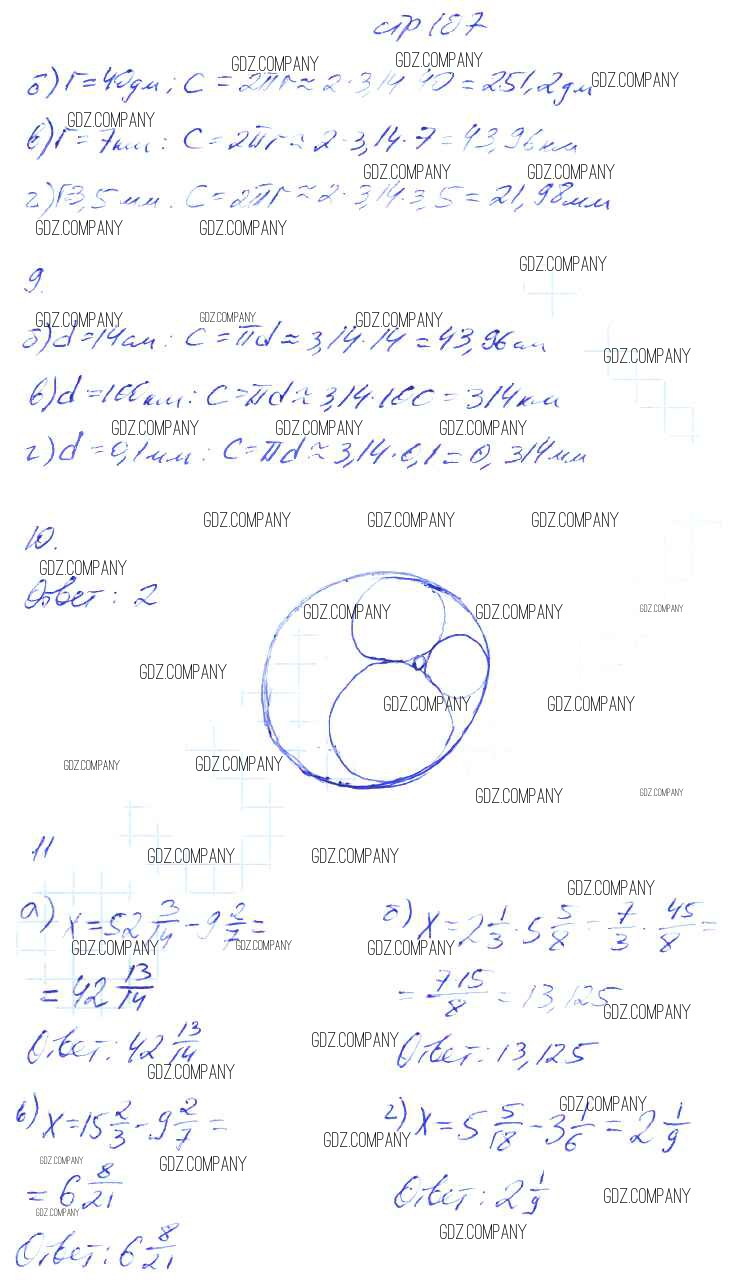 стр 187
б) r=40дм; C = 2πr ≈ 2·3,14·40 = 251,2дм
в) r=7км: C=2πr ≈ 2·3,14·7=43,96км
г) r=3,5мм. C=2πr≈2·3,14·3,5=21,98мм
9.
б) d=14см: C=πd≈3,14·14=43,96см
в) d=100км: C=πd≈3,14·100=314км
г) d=0,1мм: C=πd≈3,14·0,1=0,314мм
10.
Ответ: 2
11
а) X=52 3/14 - 9 2/7 =
= 42 13/14
Ответ: 42 13/14
б) X=2 1/3 · 5 5/8 = 7/3 · 45/8 =
= 7·15/8 = 13,125
Ответ: 13,125
в) X=15 2/3 - 9 2/7 =
= 6 8/21
Ответ: 6 8/21
г) X=5 5/18 - 3 1/6 = 2 1/9
Ответ: 2 1/9
GDZ.COMPANY